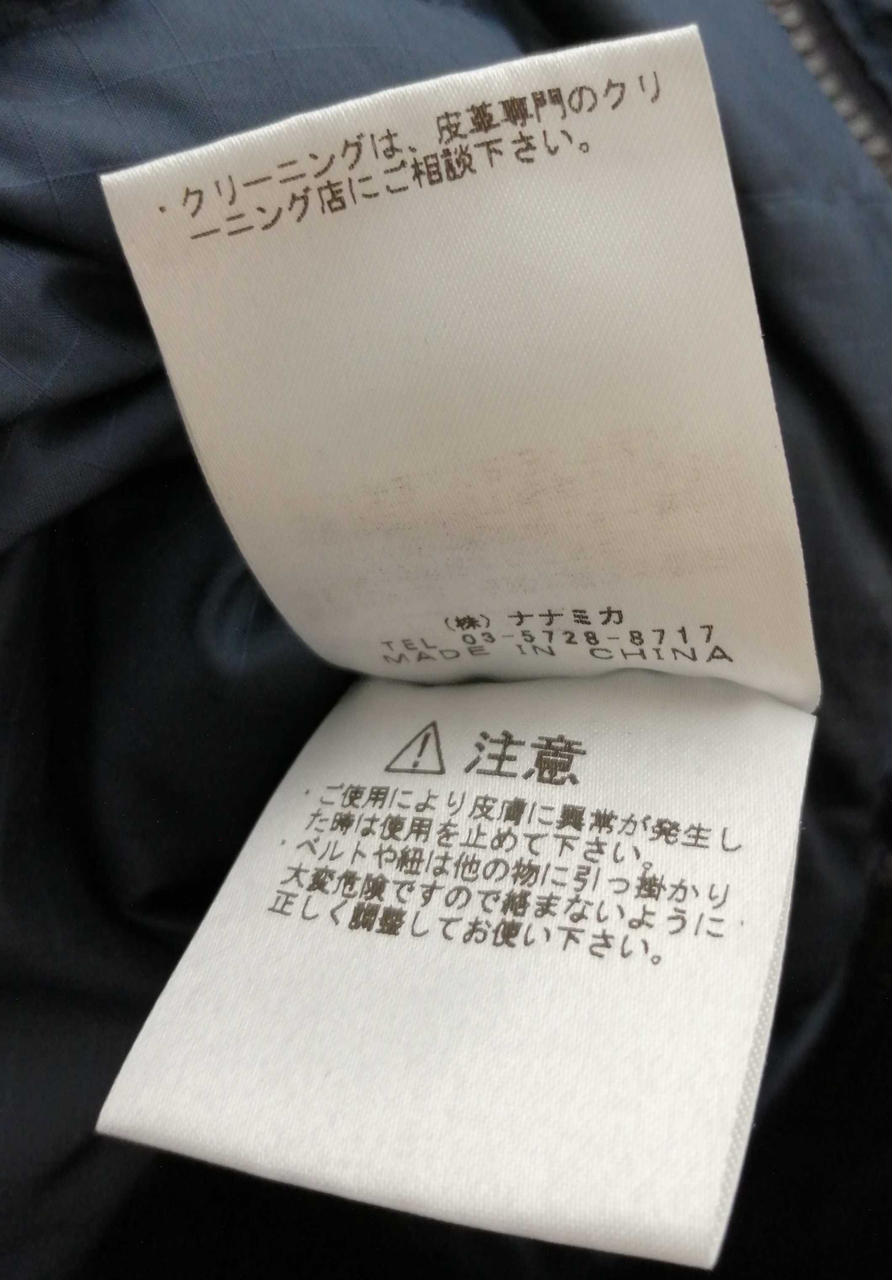 ・クリーニングは、皮革専門のクリ
ーニング店にご相談下さい。
(株)ナナミカ
TEL 03-5728-8717
MADE IN CHINA
⚠ 注意
・ご使用により皮膚に異常が発生し
た時は使用を止めて下さい。
・ベルトや紐は他の物に引っ掛かり
大変危険ですので絡まないように・
正しく調整してお使い下さい。